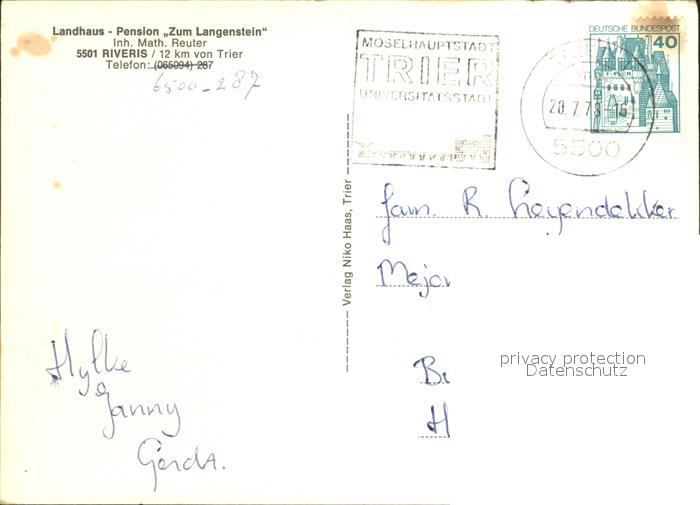 Landhaus - Pension „Zum Langenstein“
Inh. Math. Reuter
5501 RIVERIS / 12 km von Trier
Telefon: (065094) 287
6500-287
MOSELHAUPTSTADT
TRIER
UNIVERSITÄTSSTADT
DEUTSCHE BUNDESPOST
40
20.7.78-16
5500
Verlag Niko Haas, Trier
fam. R.
Major
B
H
Hylke
Janny
Gerda.
privacy protection
Datenschutz